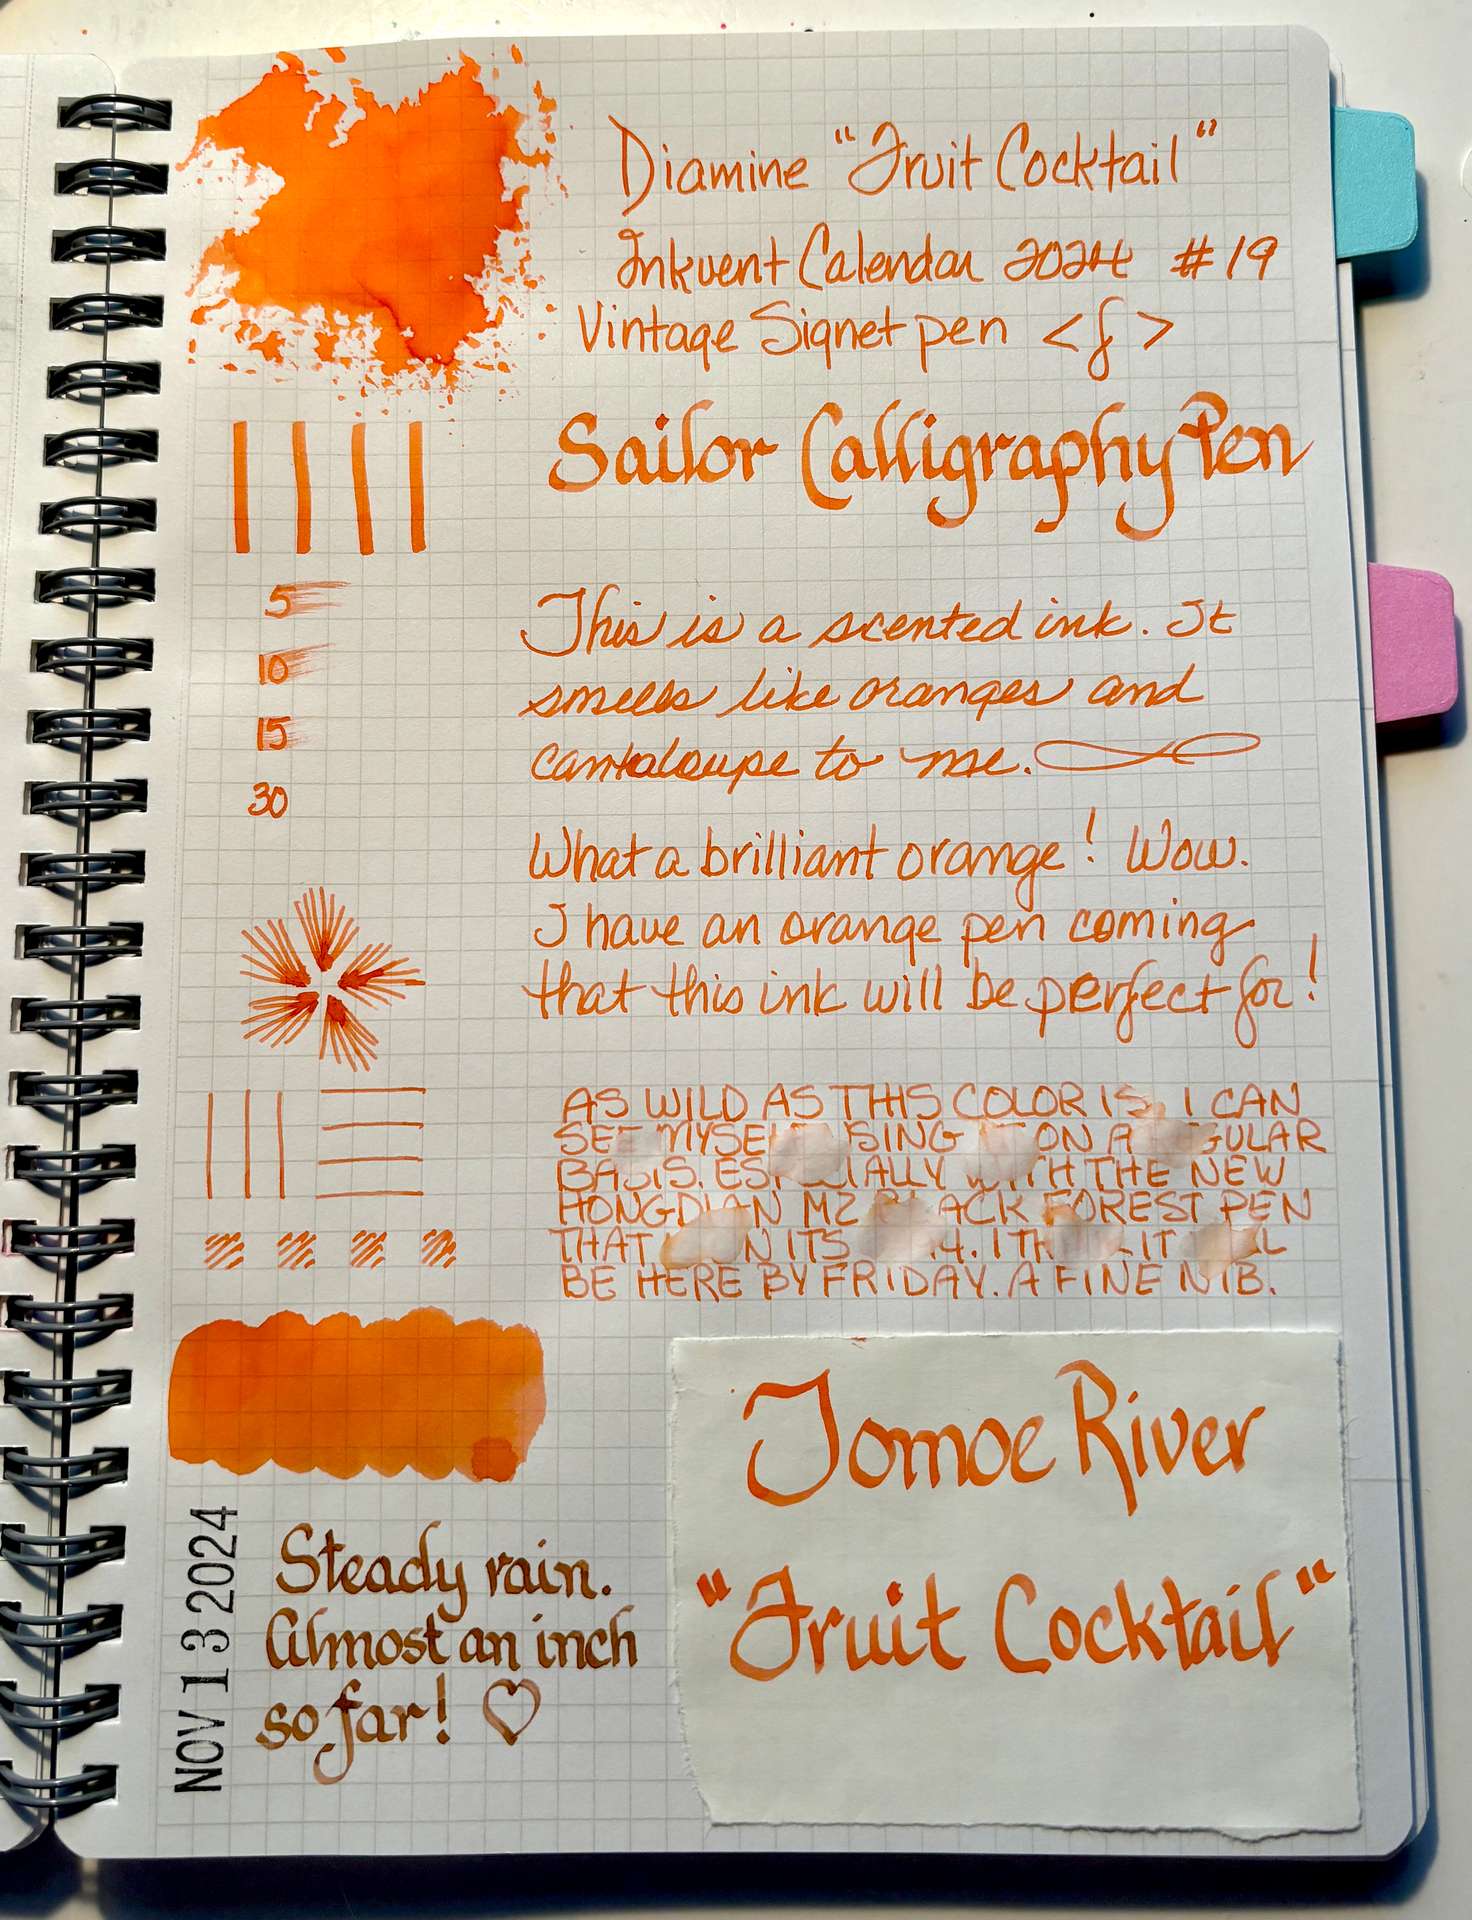 Diamine "Fruit Cocktail"
Inkvent Calendar 2024 #19
Vintage Signet pen <f>
Sailor Calligraphy Pen
5
10
15
30
This is a scented ink. It
smells like oranges and
cantaloupe to me.
What a brilliant orange! Wow.
I have an orange pen coming
that this ink will be perfect for!
AS WILD AS THIS COLOR IS, I CAN
SEE MYSELF USING IT ON A REGULAR
BASIS. ESPECIALLY WITH THE NEW
HONGDIAN M2 BLACK FOREST PEN
THAT ITS IT
BE HERE BY FRIDAY. A FINE NIB.
Tomoe River
"Fruit Cocktail"
NOV 13 2024
Steady rain.
Almost an inch
so far! ♡